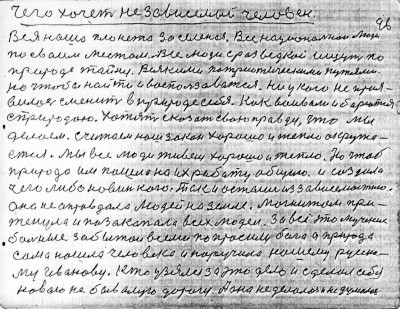 Чего хочет независимый человек.
96
Вся наша планета заселена. Все национальные люди
по своим местам. Все люди с разведкой ищут по
природе тайну. Всякими патриотическими путями,
но чтобы найти и воспользоваться. Ни у кого не
сменить в природе себя. Как воевали и борятся
с природою. Хотят сказать свою правду, что мы
делаем. Считаем наш закон хорошо и тепло
Мы все люди живем хорошо и тепло. Но чтоб
природа им пошла на их работу общую, и создала
чего либо новинкого. Так и остались зависемостию.
Она не оправдала людей на земле. Магнитом при-
тянула и позакапала всех людей. За все это мучение
большие забытой всеми попросили бога а природа
сама нашла человека и поручила нашему русско-
му Иванову. Кто узялся за это дело и сделал себе
новаю не бывалую дорогу. А она не делалась и не думала